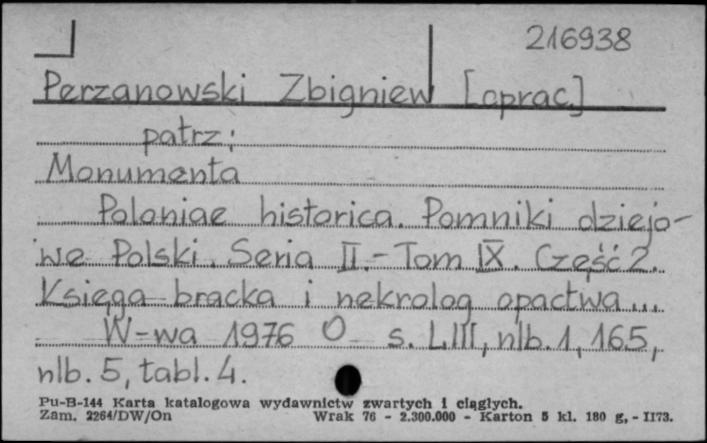 216938
Perzanowski Zbigniew [oprac.]
patrz:
Monumenta
Poloniae historica. Pomniki dziejo-
we Polski. Seria II. - Tom IX. Część 2.
Księga bracka i nekrolog opactwa...
W-wa 1976 O s. LIII, nlb. 1, 165,
nlb. 5, tabl. 4.
Pu-B-144 Karta katalogowa wydawnictw zwartych i ciągłych.
Zam. 2264/DW/On Wrak 76 - 2.300.000 - Karton 5 kl. 180 g, - II73.